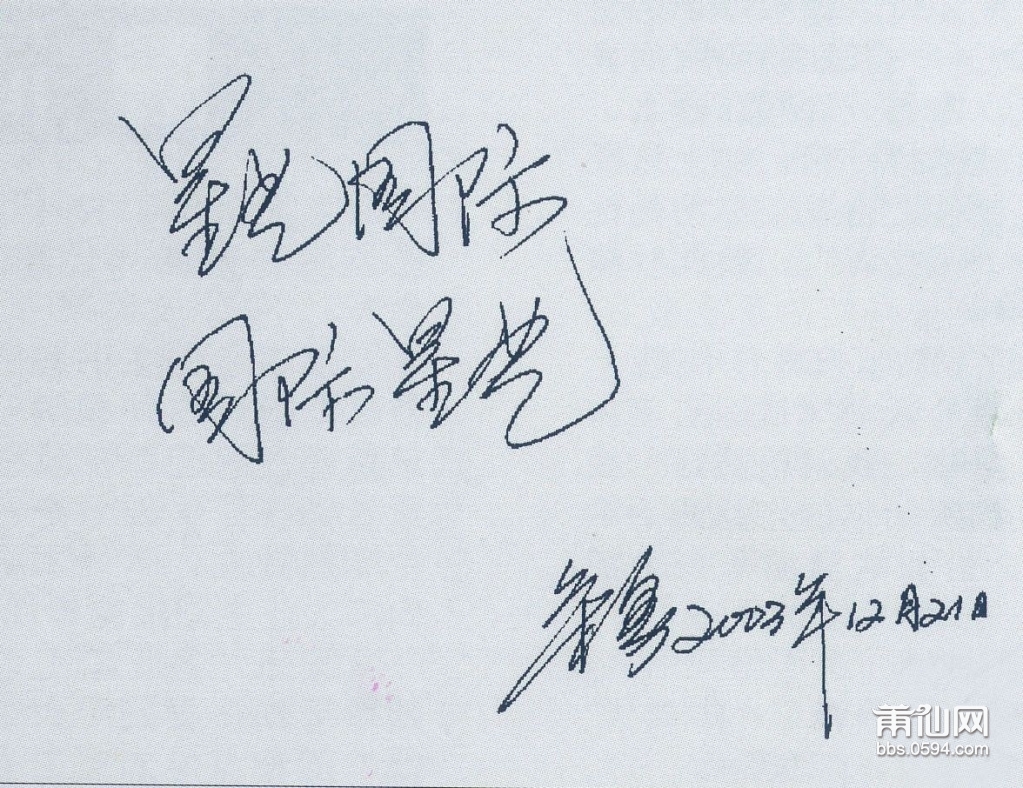 星光国际
国际星光
2003年12月21日
莆仙网
bbs.0594.com